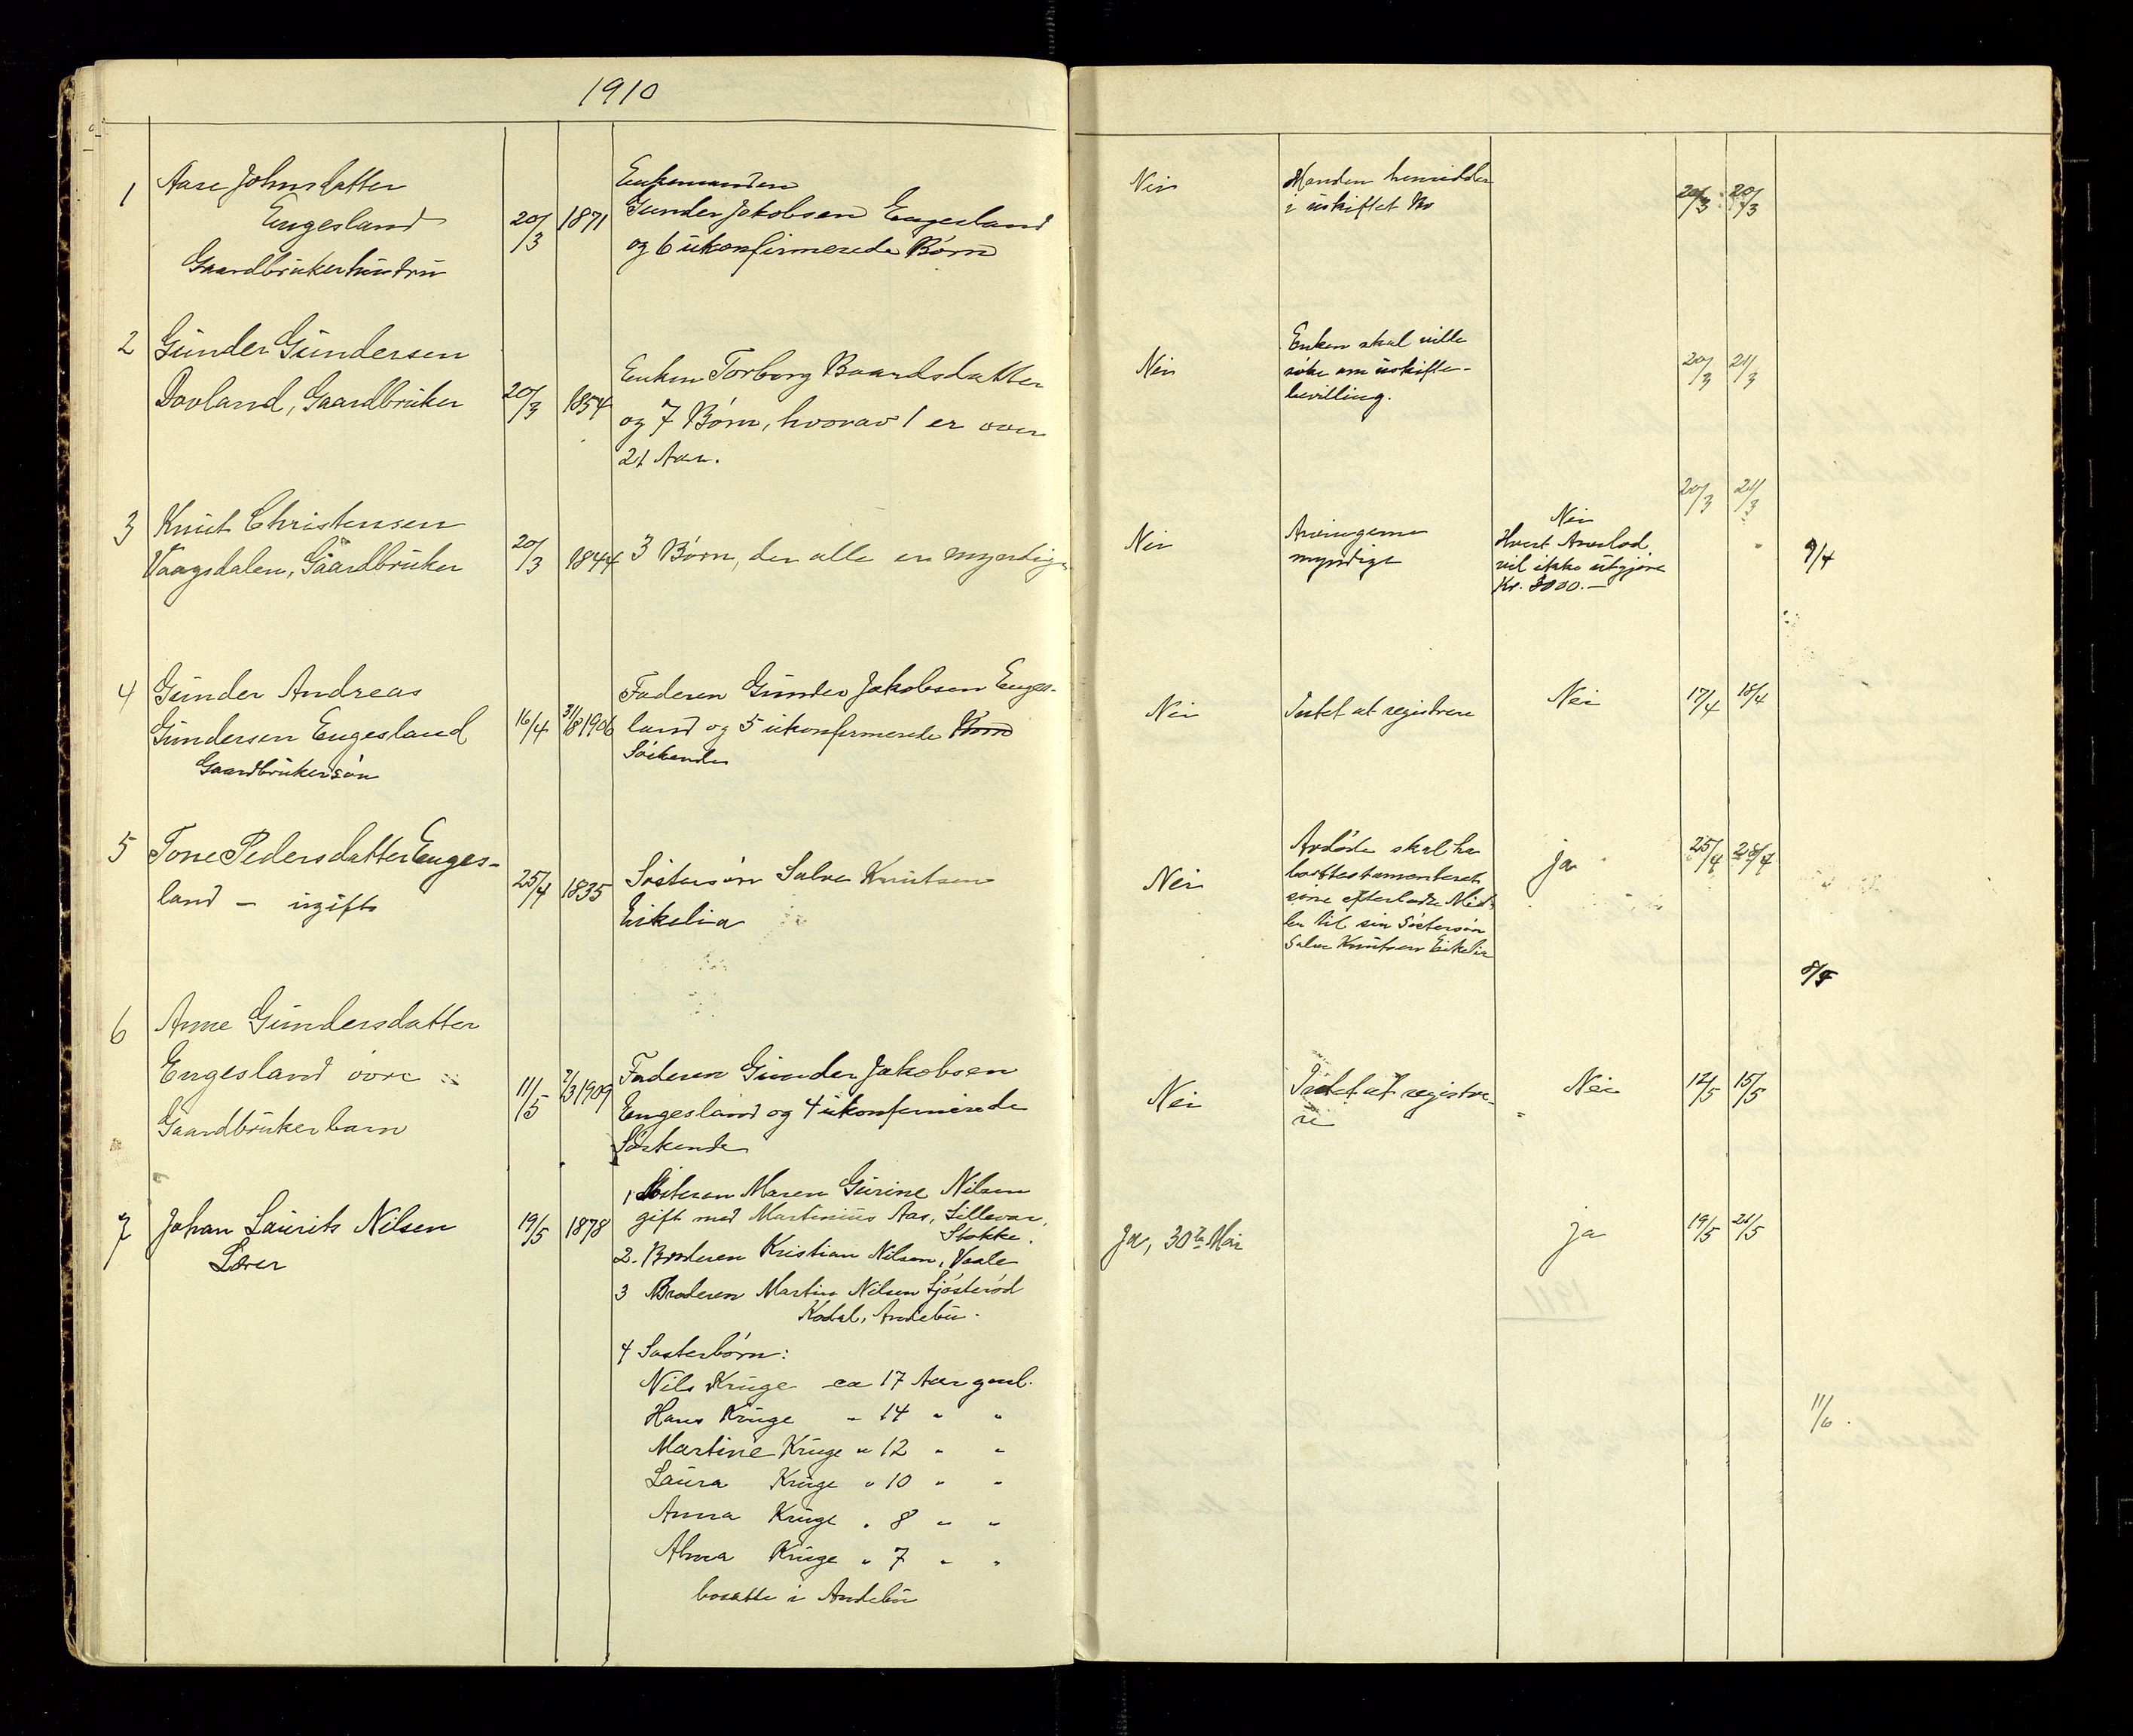 1910
1 Aase Johnsdatter
Engesland
Gaardbrukerhustru
20/3 1871
Enkemanden
Gunder Jakobsen Engesland
og 6 ukonfirmerede Børn
Nei
Manden hensidder
i uskiftet Bo
20/3 20/3
2 Gunder Gundersen
Dovland, Gaardbruker
20/3 1854
Enken Torborg Baardsdatter
og 7 Børn, hvorav 1 er over
21 Aar.
Nei
Enken skal ville
søke om uskifte-
bevilling.
20/3 21/3
3 Knut Christensen
Vaagsdalen, Gaardbruker
20/3 1844
3 Børn, der alle er myndige
Nei
Arvingerne
myndige
Nei
Hvert Arvelod
vil ikke utgjøre
Kr. 3000.-
20/3 21/3
9/4
4 Gunder Andreas
Gundersen Engesland
Gaardbrukersøn
16/4 31/8 1906
Faderen Gunder Jakobsen Enges-
land og 5 ukonfirmerede Børn
Søskende
Nei
Intet at registrere
Nei
17/4 18/4
5 Tone Pedersdatter Enges-
land - ugift
25/4 1835
Søstersøn Salve Knutsen
Eikelia
Nei
Avdøde skal ha
borttestamenteret
sine efterladte Mid-
ler til sin Søstersøn
Salve Knutsen Eikelia
ja
25/4 28/4
8/5
6 Anne Gundersdatter
Engesland øvre
Gaardbrukerbarn
11/5 7/3 1909
Faderen Gunder Jakobsen
Engesland og 4 ukonfirmerede
Søskende
Nei
Intet at registre-
re
Nei
12/5 15/5
7 Johan Laurits Nilsen
Lærer
19/5 1878
1 Søsteren Maren Gurine Nilsen
gift med Martinius Aas, Lillevar,
Stokke.
2. Broderen Kristian Nilsen, Vaale
3 Broderen Martin Nilsen Sjøsterød
Kodal, Andebu.
4 Søsterbørn:
Nils Kruge ca 17 Aar gml.
Hans Kruge - 14 " "
Martine Kruge " 12 " "
Laura Kruge " 10 " "
Anna Kruge " 8 " "
Alma Kruge " 7 " "
bosatte i Andebu
Ja, 30te Mai
ja
19/5 21/5
11/6.